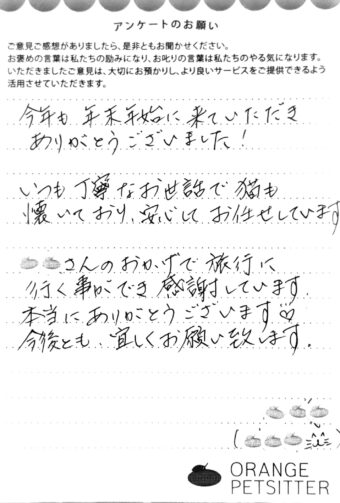 アンケートのお願い
ご意見ご感想がありましたら、是非ともお聞かせください。
お褒めの言葉は私たちの励みになり、お叱りの言葉は私たちのやる気になります。
いただきましたご意見は、大切にお預かりし、より良いサービスをご提供できるよう
活用させていただきます。
今年も年末年始に来ていただき
ありがとうございました!
いつも丁寧なお世話で猫も
懐いており、安心してお任せしています
さんのおかげで旅行に
行く事ができ感謝しています。
本当にありがとうございます♡
今後とも、宜しくお願い致します。
ORANGE
PETSITTER